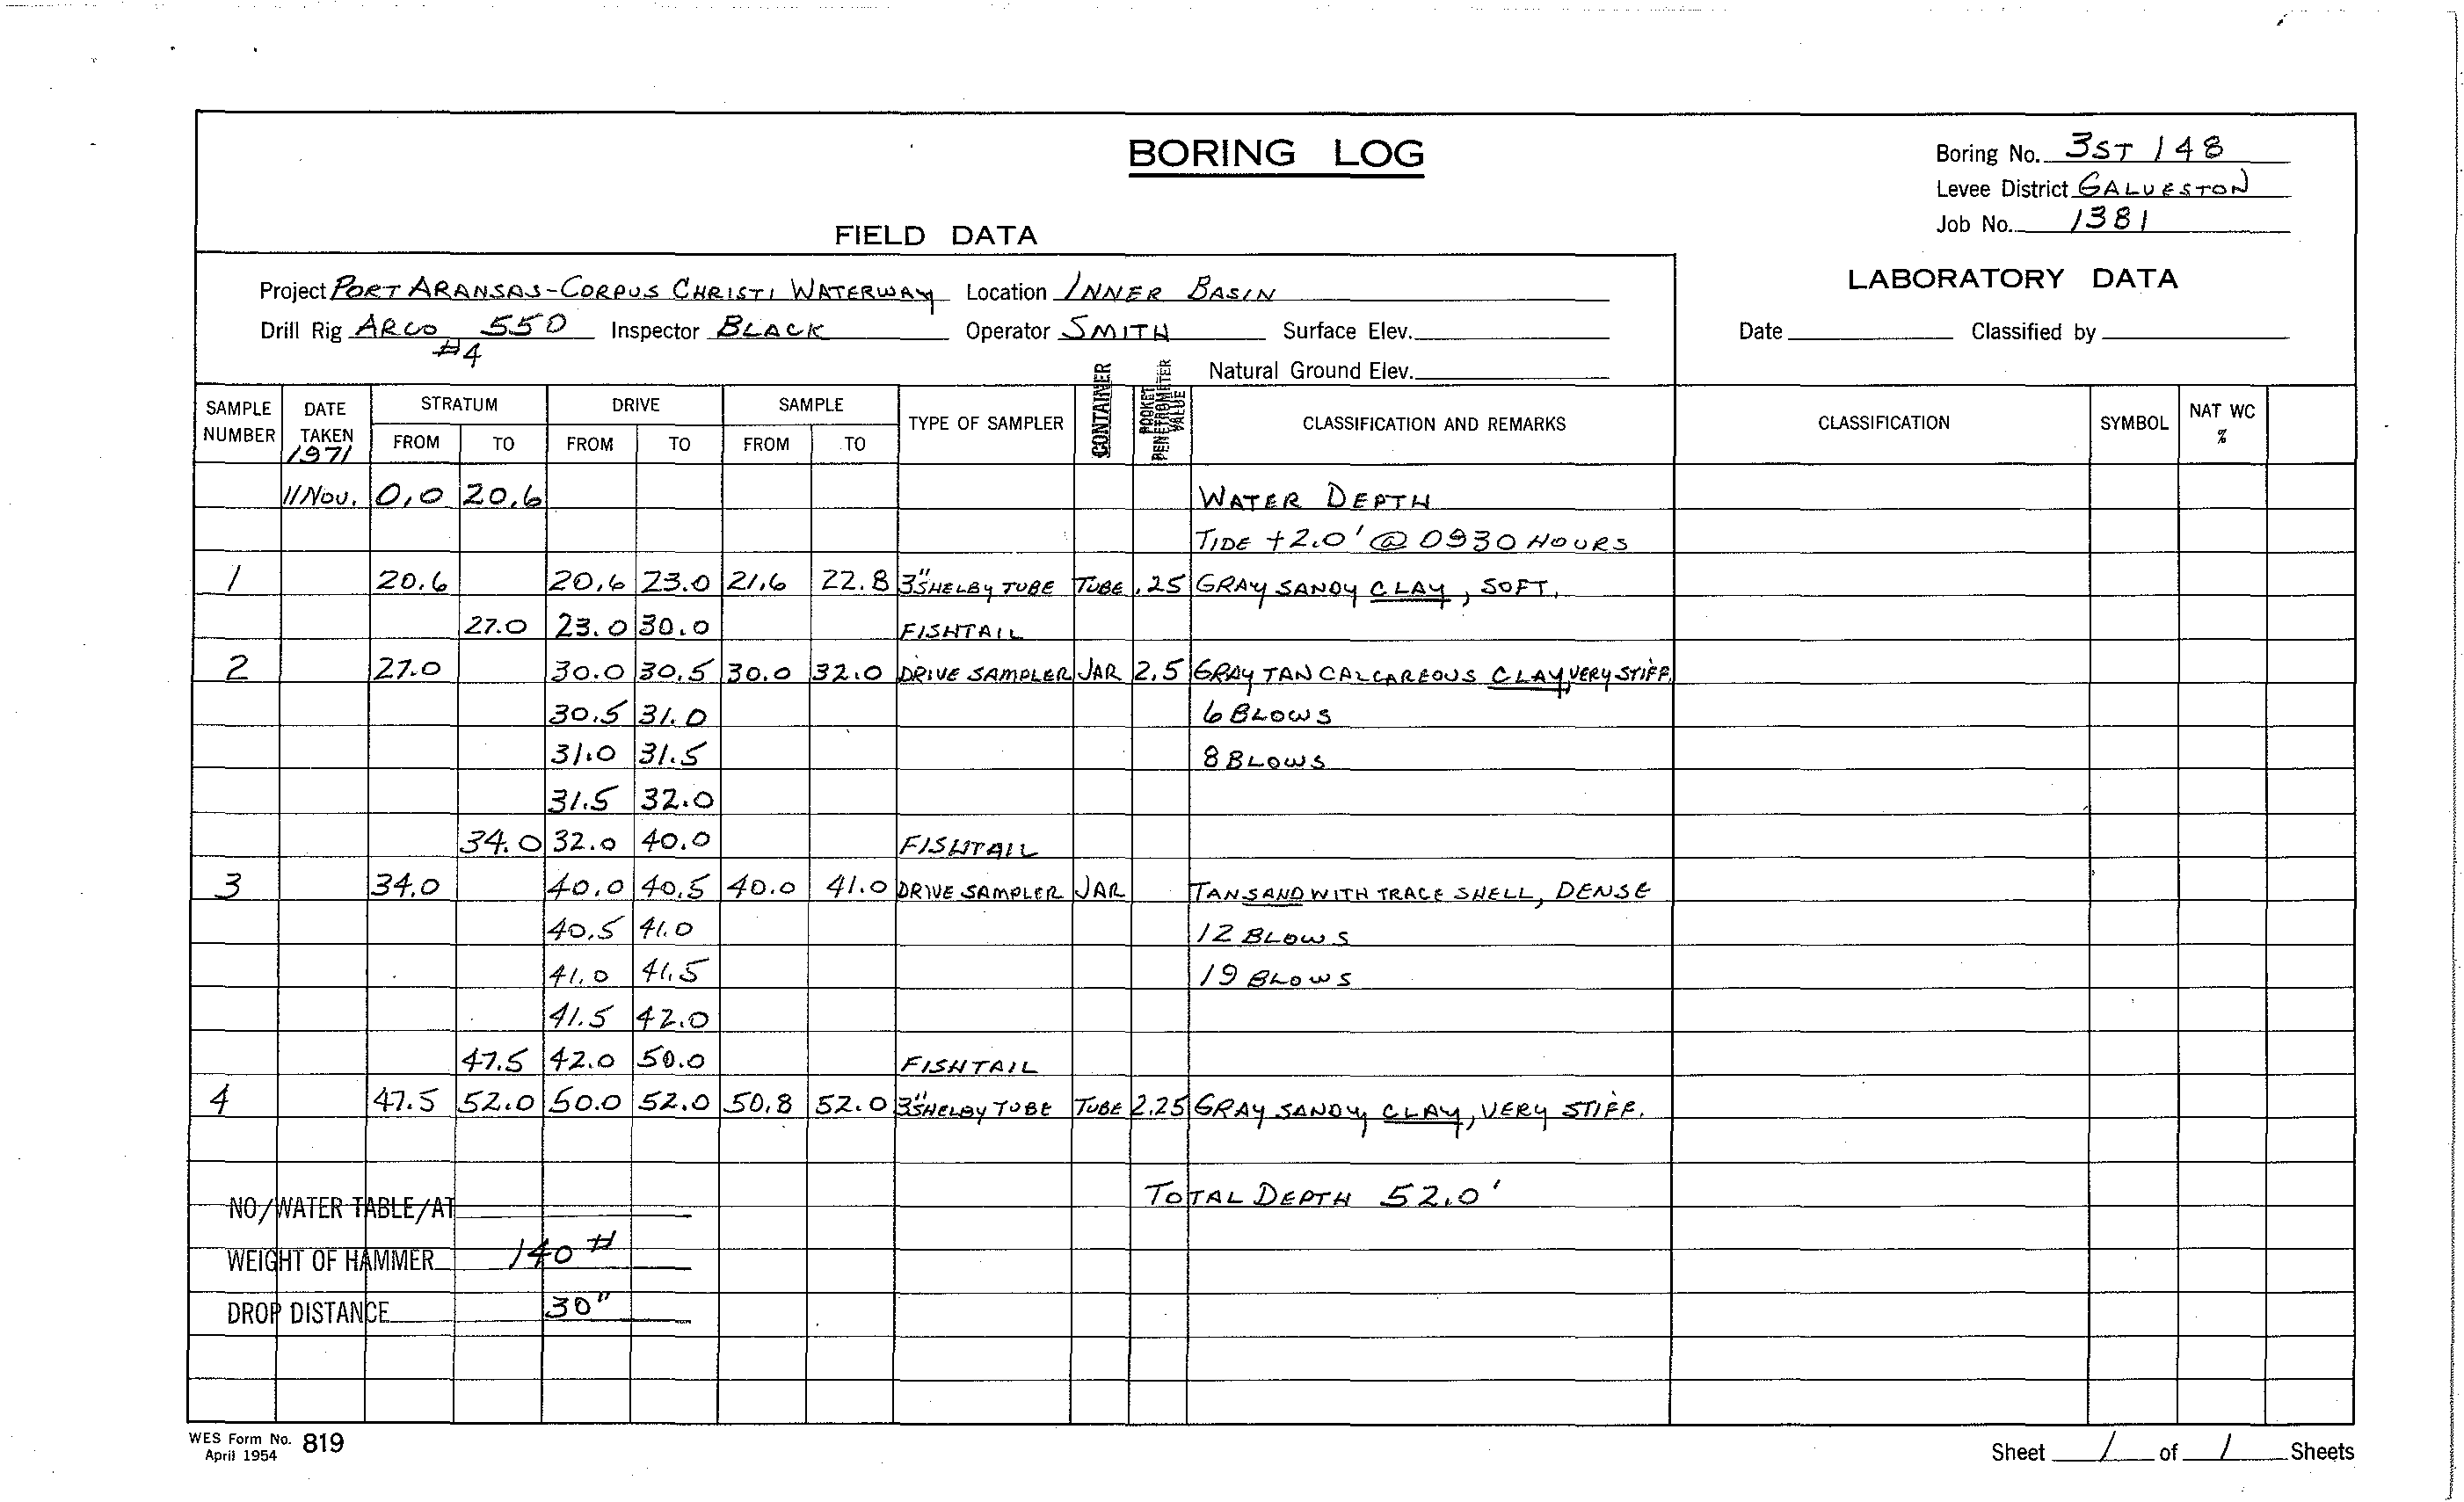 BORING LOG
Boring No. 3ST 148
Levee District GALVESTON
Job No. 1381
FIELD DATA
LABORATORY DATA
Project PORT ARANSAS-CORPUS CHRISTI WATERWAY Location INNER BASIN
Drill Rig ARCO 550 Inspector BLACK Operator SMITH Surface Elev. Date Classified by
#4
Natural Ground Elev.
SAMPLE NUMBER DATE TAKEN 1971 STRATUM FROM TO DRIVE FROM TO SAMPLE FROM TO TYPE OF SAMPLER CONTAINER POCKET PENETROMETER VALUE CLASSIFICATION AND REMARKS CLASSIFICATION SYMBOL NAT WC %
11 Nov. 0.0 20.6 WATER DEPTH
TIDE +2.0' @ 0930 HOURS
1 20.6 20.6 23.0 21.6 22.8 3" SHELBY TUBE TUBE .25 GRAY SANDY CLAY, SOFT.
27.0 23.0 30.0 FISHTAIL
2 27.0 30.0 30.5 30.0 32.0 DRIVE SAMPLER JAR 2.5 GRAY TAN CALCAREOUS CLAY, VERY STIFF.
30.5 31.0 6 BLOWS
31.0 31.5 8 BLOWS
31.5 32.0
34.0 32.0 40.0 FISHTAIL
3 34.0 40.0 40.5 40.0 41.0 DRIVE SAMPLER JAR TAN SAND WITH TRACE SHELL, DENSE
40.5 41.0 12 BLOWS
41.0 41.5 19 BLOWS
41.5 42.0
47.5 42.0 50.0 FISHTAIL
4 47.5 52.0 50.0 52.0 50.8 52.0 3" SHELBY TUBE TUBE 2.25 GRAY SANDY CLAY, VERY STIFF.
TOTAL DEPTH 52.0'
NO/WATER TABLE/AT
WEIGHT OF HAMMER 140 #
DROP DISTANCE 30"
WES Form No. 819
April 1954
Sheet 1 of 1 Sheets